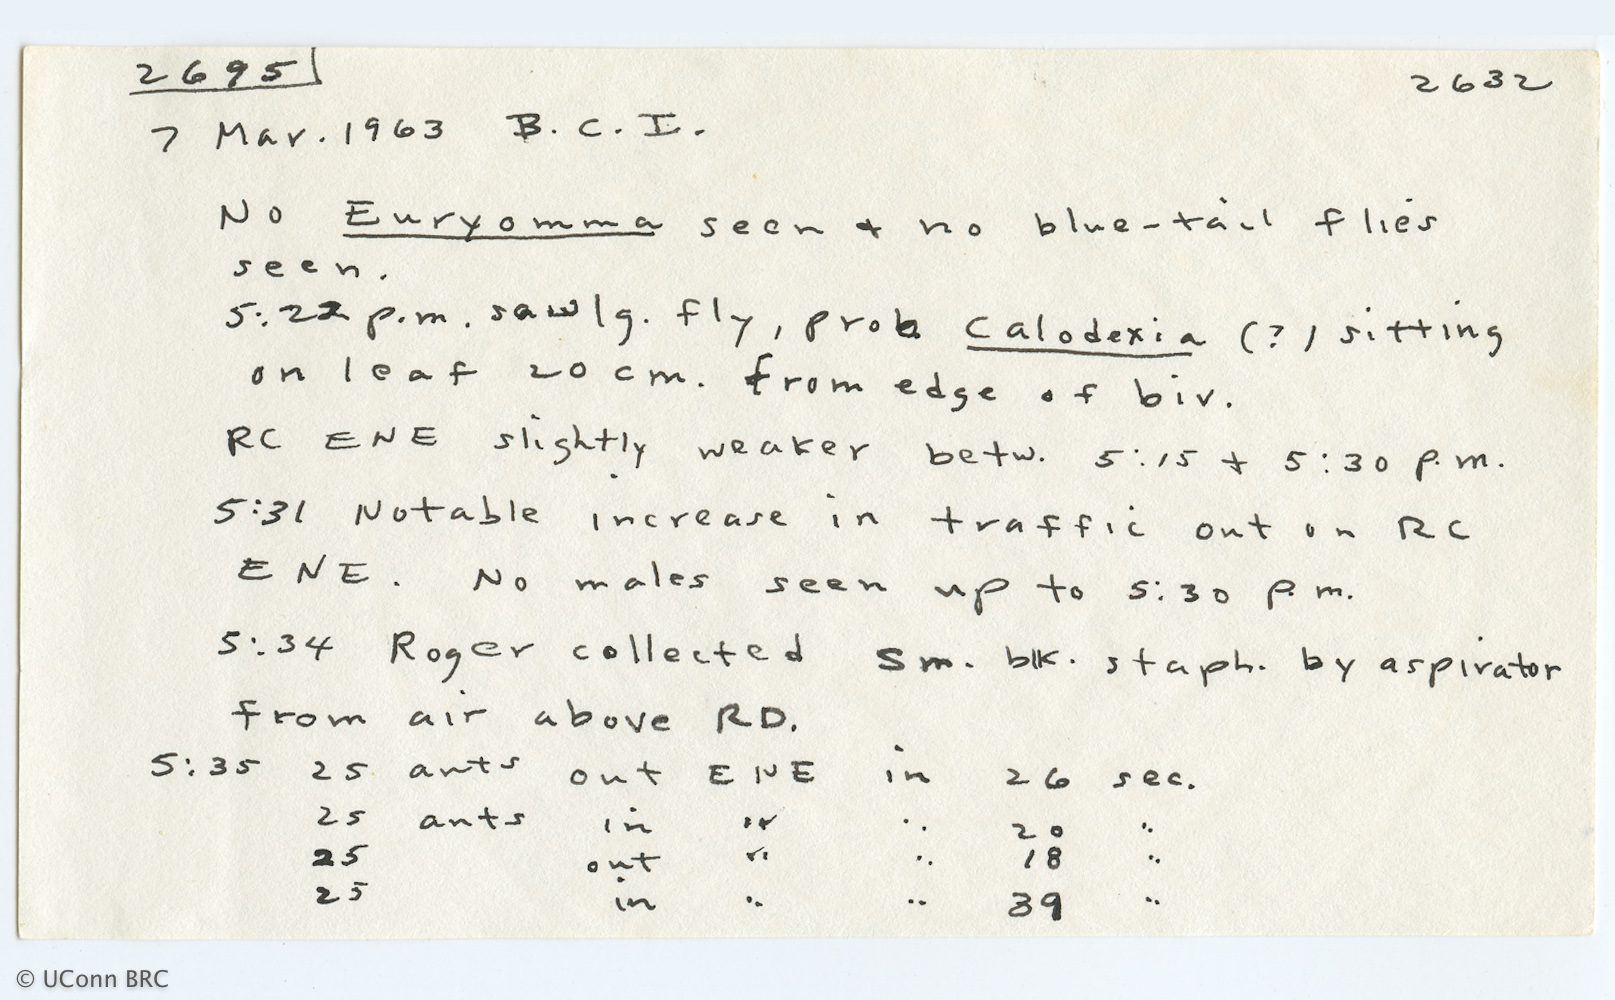 2695 2632
7 Mar. 1963 B.C.I.
No Euryomma seen + no blue-tail flies
seen.
5:22 p.m. saw lg. fly, prob Calodexia (?) sitting
on leaf 20 cm. from edge of biv.
RC ENE slightly weaker betw. 5:15 + 5:30 p.m.
5:31 Notable increase in traffic out on RC
ENE. No males seen up to 5:30 p.m.
5:34 Roger collected sm. blk. staph. by aspirator
from air above RD.
5:35 25 ants out ENE in 26 sec.
25 ants in " " 20 "
25 out " " 18 "
25 in " " 39 "
© UConn BRC